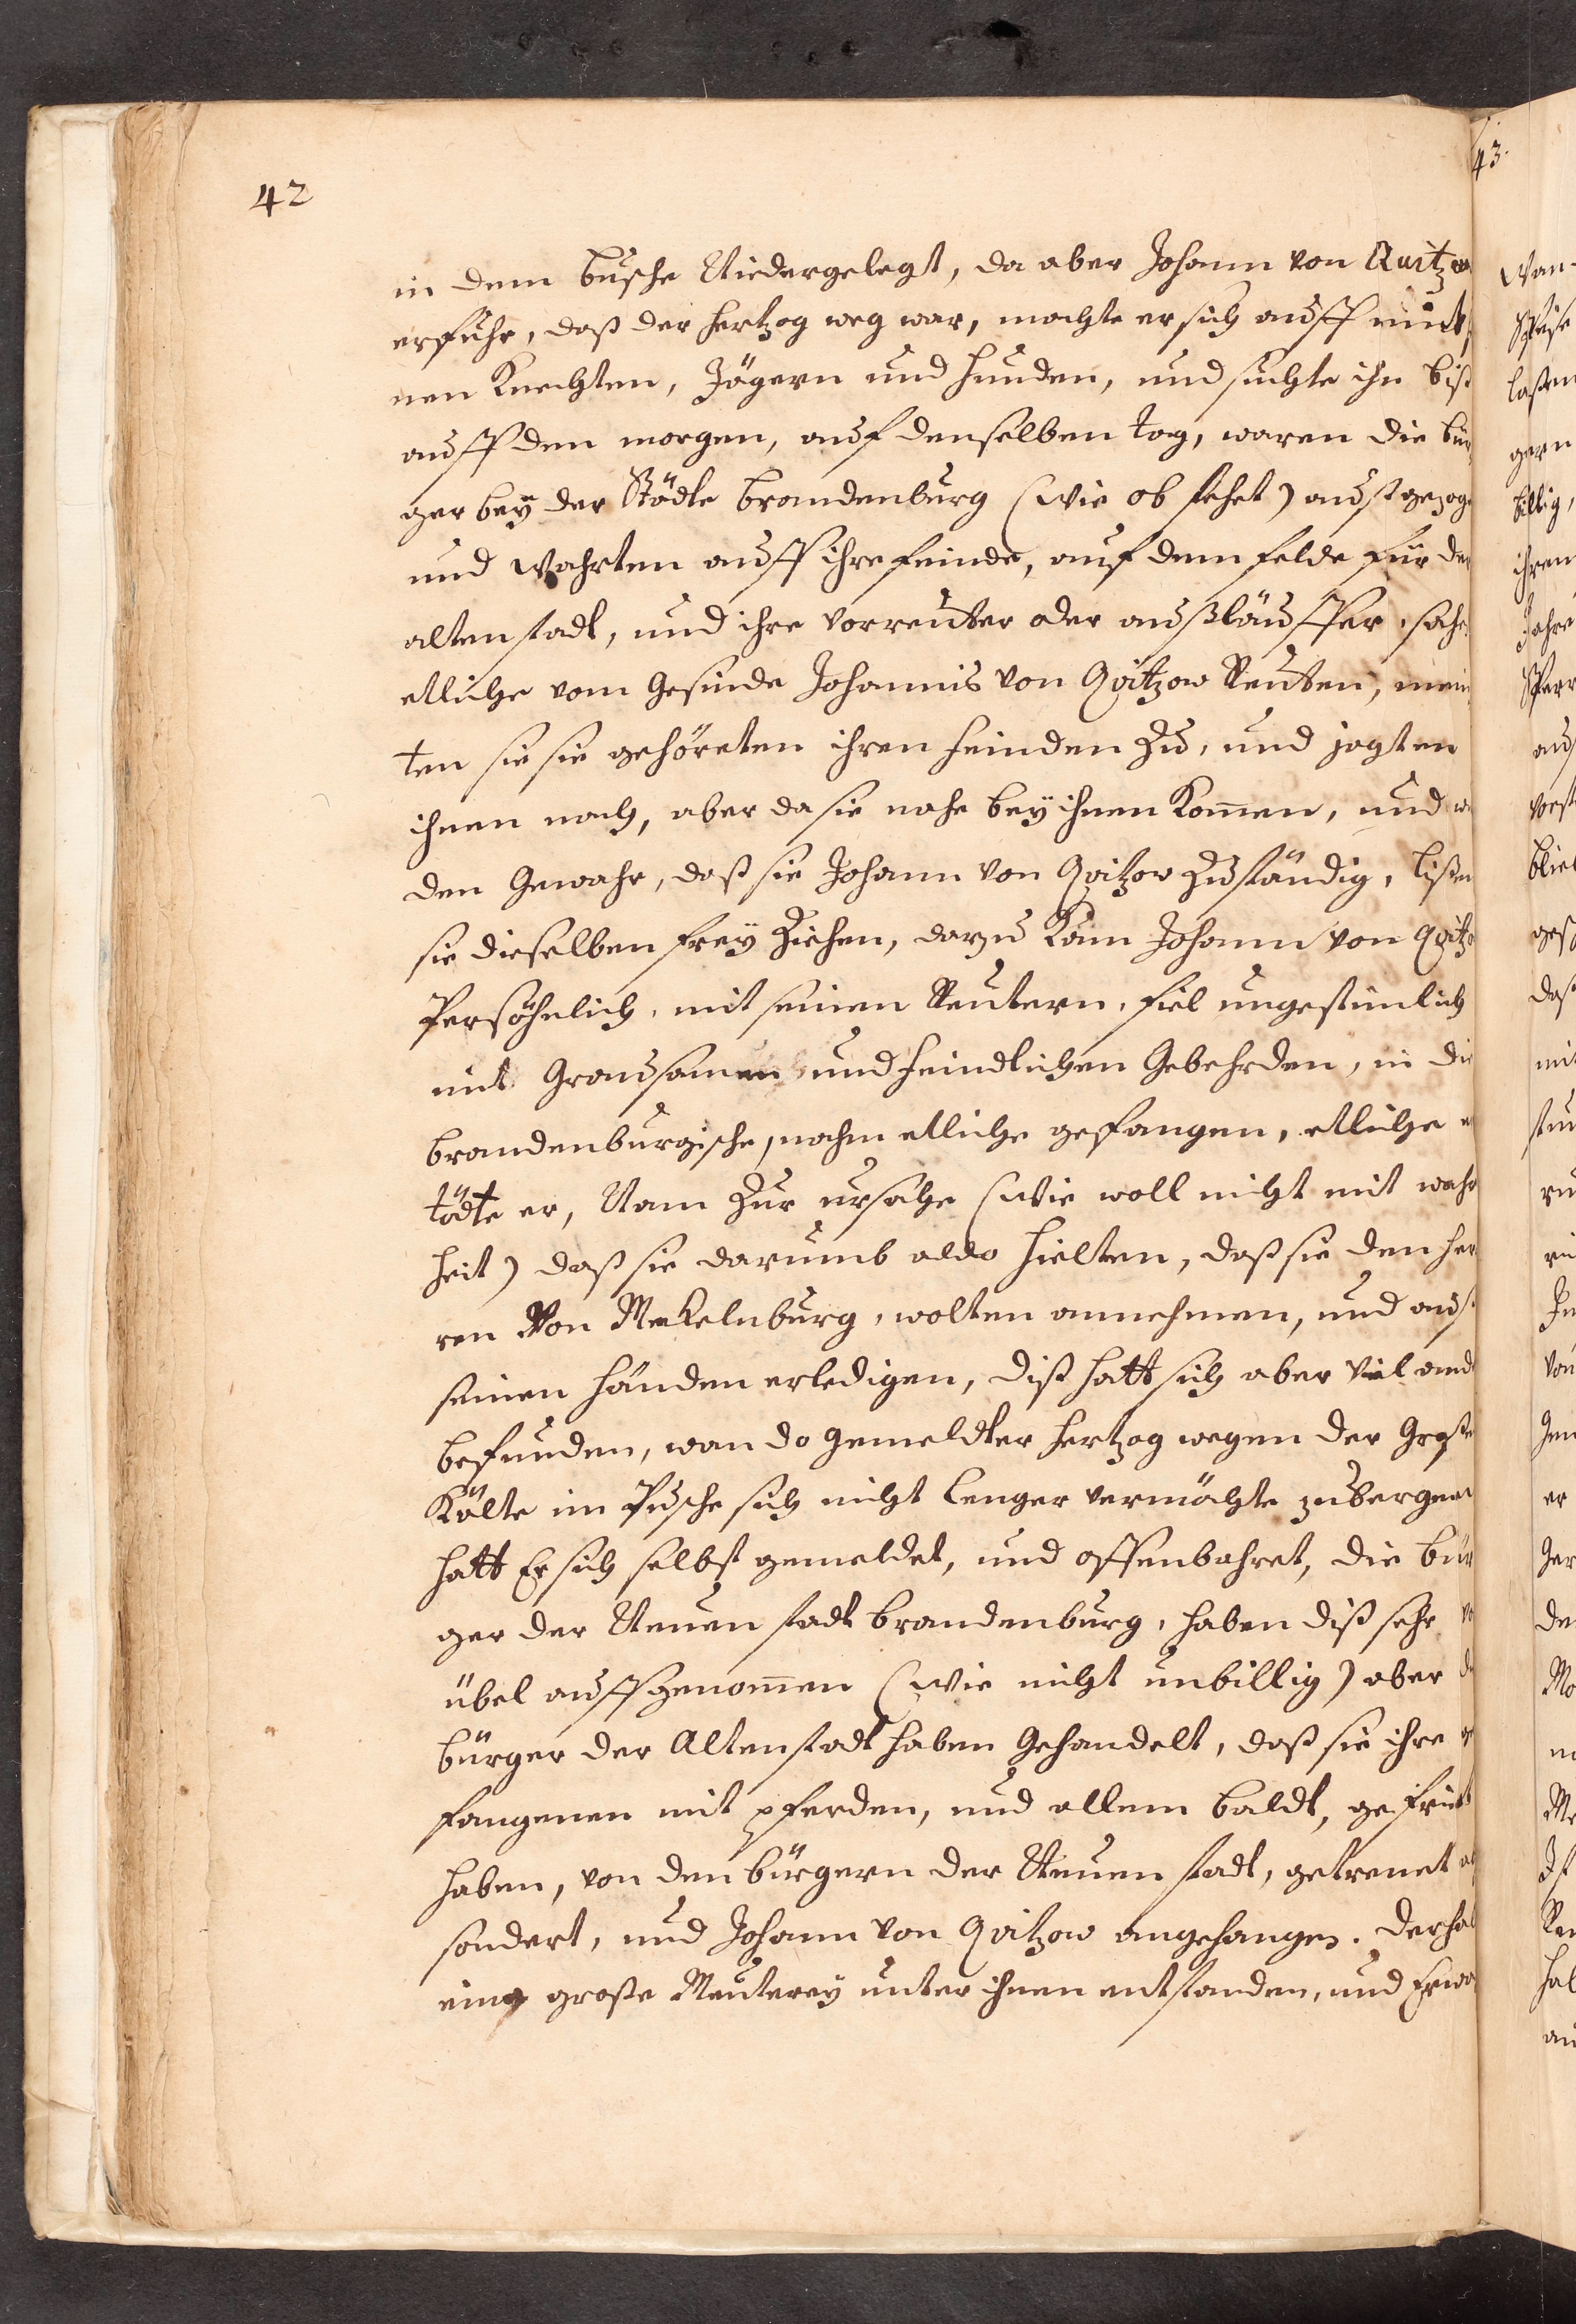 42
in dem busche Niedergelegt, da aber Johann von Quitzow
erfuhr, daß der Hertzog weg war, machte er sich auff mit
nen Knechten, Jägern und Hunden, und suchte ihn biß
auff den morgen, auf denselben tag, waren die bür
ger beÿ der Städte brandenburg (wie ob stehet) aust gezoge
und wahrten auff ihre feinde, auf dem felde für der
alten stadt, und ihre vorreuter oder außläuffer, sahe
etliche vom Gesinde Johannis von Qvitzow Reuten, mein
ten sie sie gehöreten ihren feinden Zu, und jagten
ihnen nach, aber da sie nahe beÿ ihnen Kom̅en, und w
den Gewahr, daß sie Johann von Qvitzow Zuständig, lißen
sie dieselben freÿ Ziehen, darzu Kam Johann von Qvitzo
Persöhnlich, mit seinen Reutern, fiel ungestümlich
mit Grausamen und feindlichen Gebehrden, in die
brandenburgische, nahm etliche gefangen, etliche
tödte er, Nam Zur ursache (wie woll nicht mit wahr
heit) daß sie darumb aldo hielten, daß sie den her
ren Von Mekelnburg, wolten annehmen, und aus
seinen händen erledigen, diß hatt sich aber viel and
befunden, wan do gemeldter Hertzog wegen der Große
Kälte im Pusche sich nicht lenger vermöchte zubergen
hatt Er sich selbst gemeldet, und offenbahret, die bür
ger der Neuen stadt brandenburg, haben diß sehr
übel auffgenom̅en (wie nicht unbillig) aber d
bürger der Altenstadt haben Gehandelt, daß sie ihre ge
fangenen mit pferden, und allem baldt, gefriet
haben, von den bürgern der Neuen stadt, getrenet ab
sondert, und Johann von Qvitzow angehangen. Derhal
eine große Meutereÿ unter ihnen entstanden, und
43.
Wan-
laßen
gern
billig,
ihren
Jahre